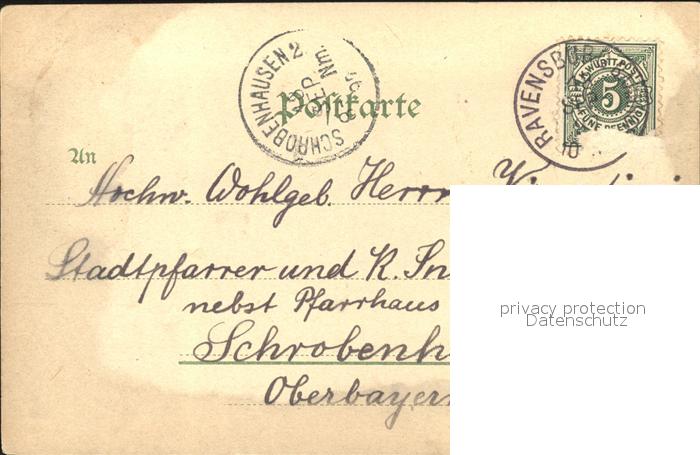 SCHROBENHAUSEN 2
SEP
Nm.
Postkarte
RAVENSBURG
K. WÜRTT. POST
5
FÜNF PFENNIG
10
An
Hochw. Wohlgeb. Herrn
Stadtpfarrer und K.
nebst Pfarrhaus
Schrobenh
Oberbayern
privacy protection
Datenschutz